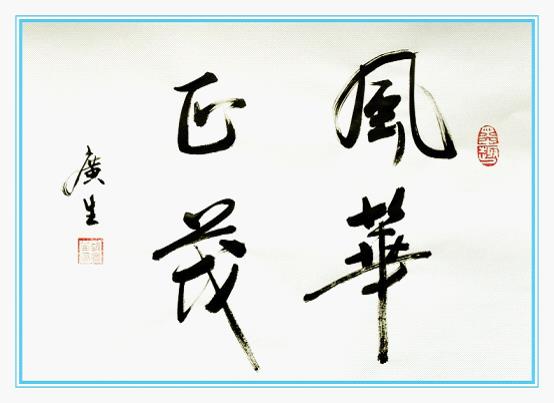 風華
正茂
廣生